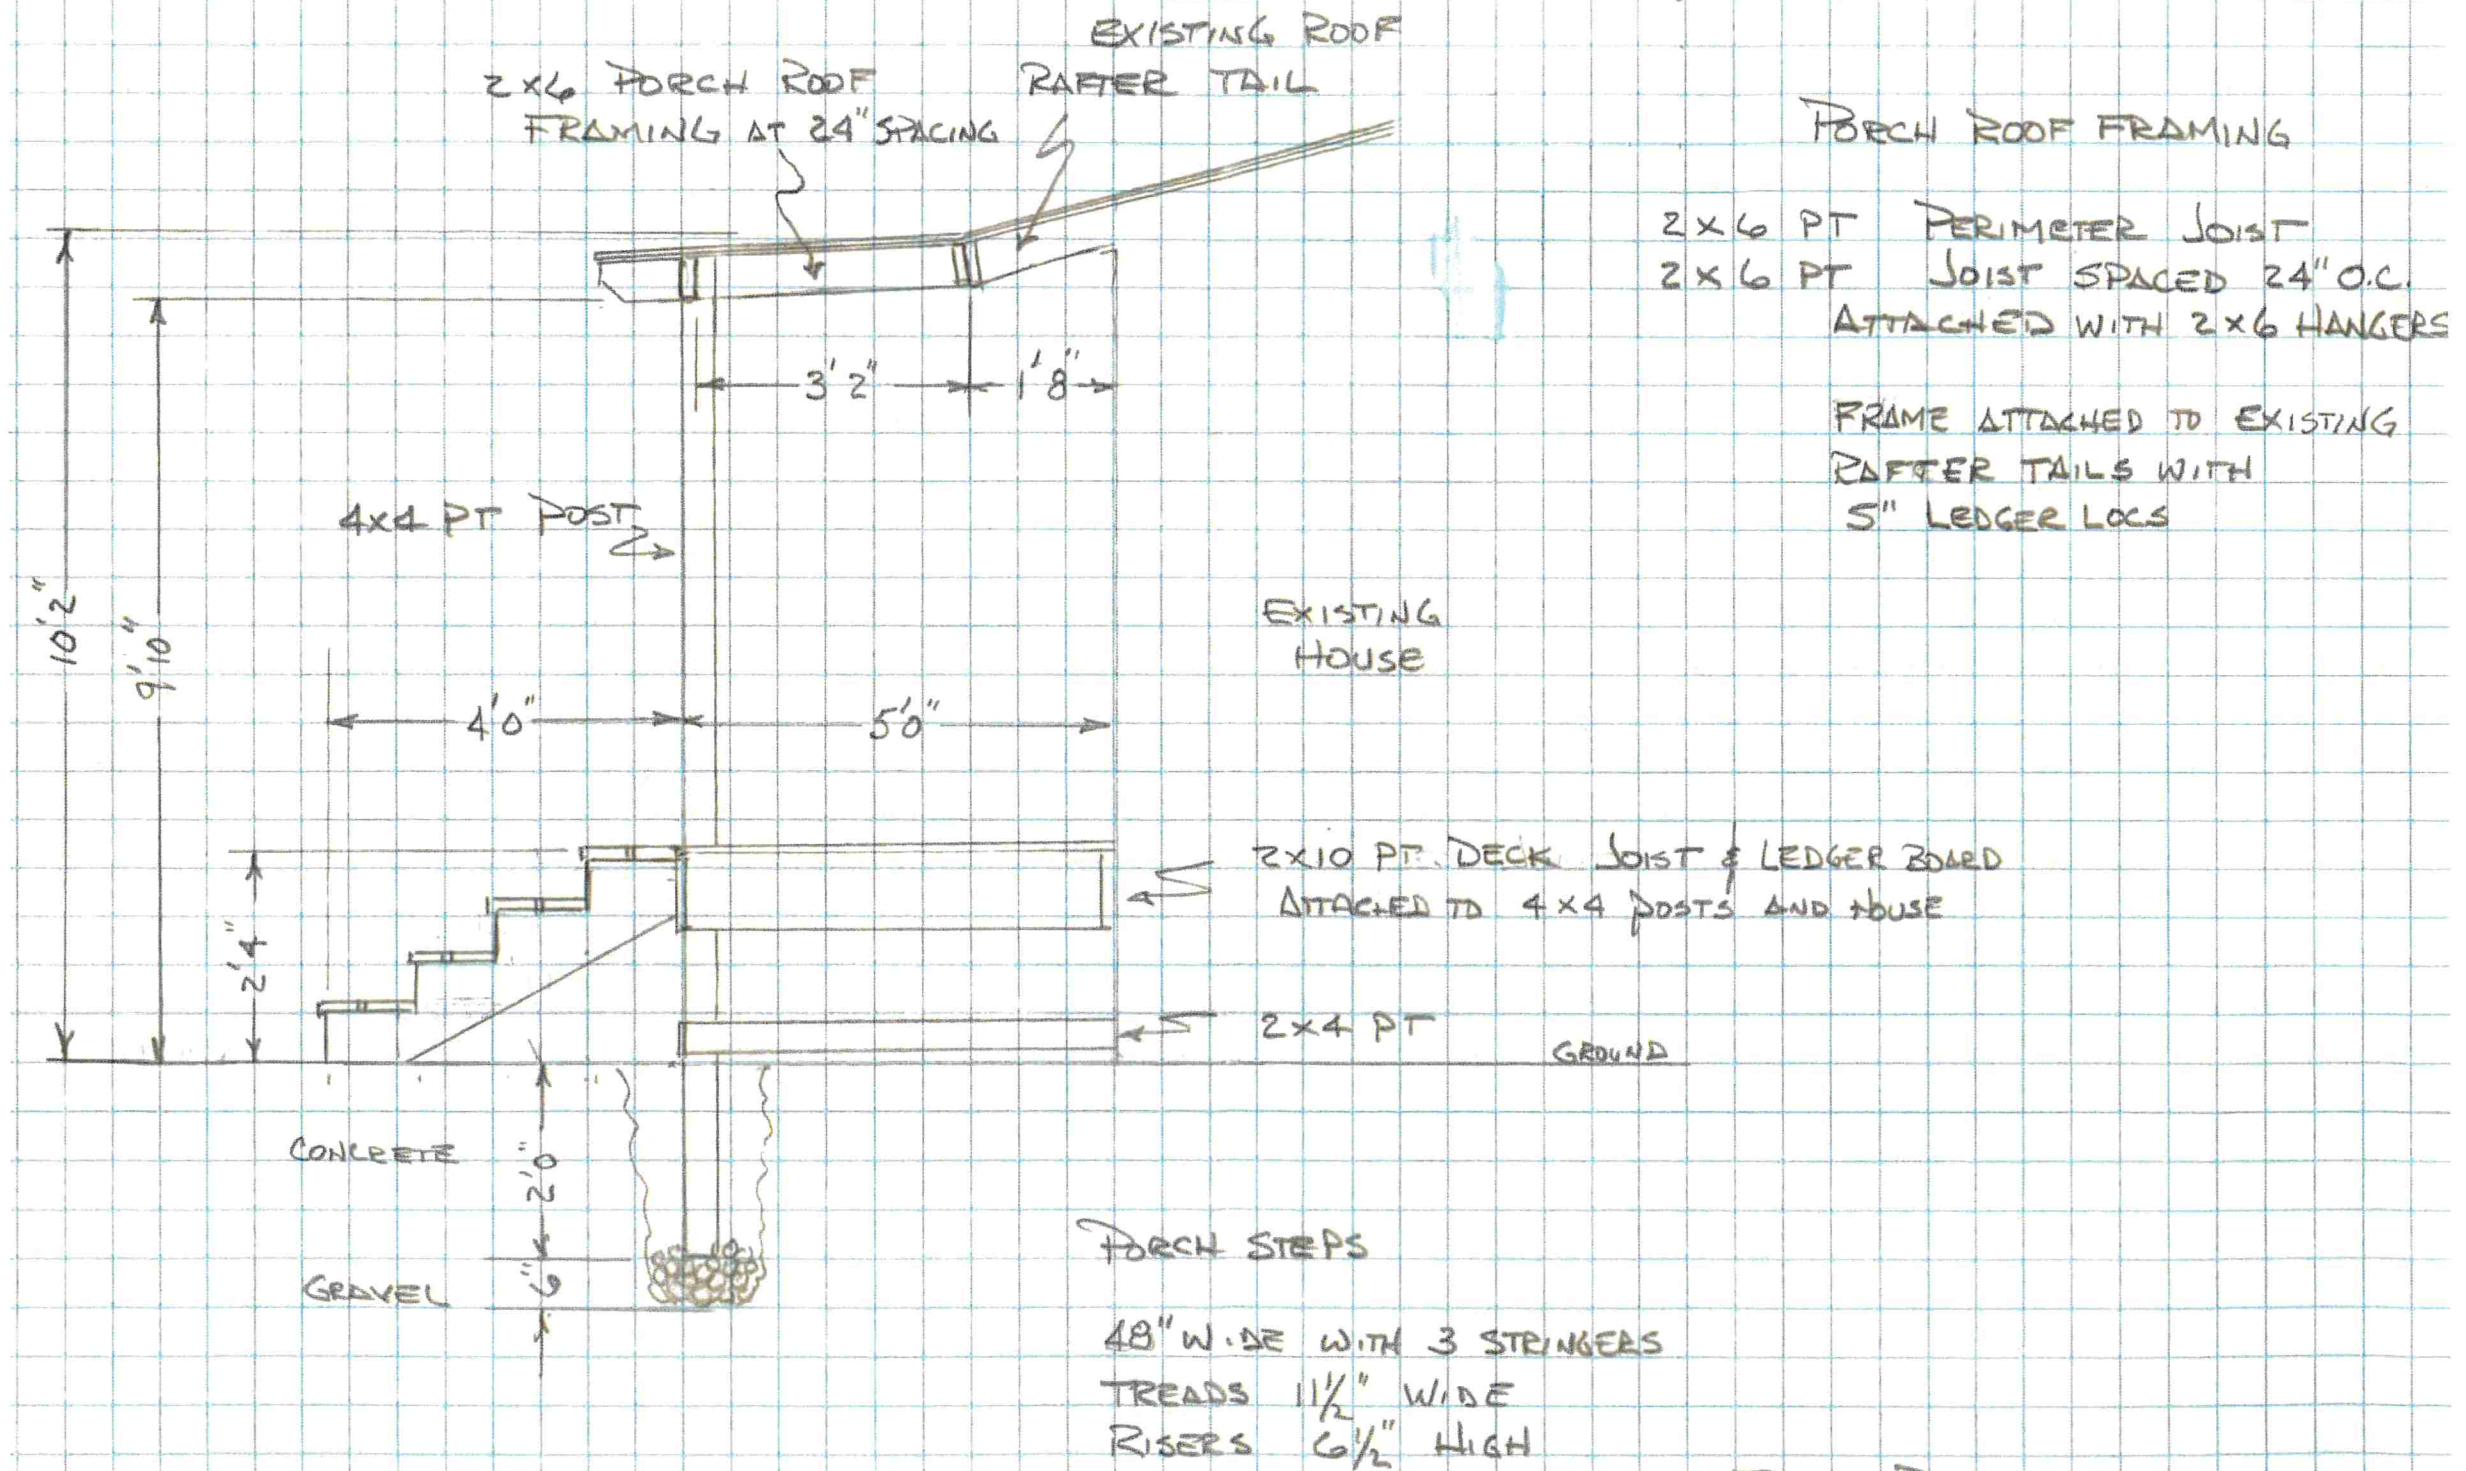 EXISTING ROOF
RAFTER TAIL
2x6 PORCH ROOF
FRAMING AT 24" SPACING
PORCH ROOF FRAMING
2 x 6 PT PERIMETER JOIST
2 x 6 PT JOIST SPACED 24" O.C.
ATTACHED WITH 2 x 6 HANGERS
FRAME ATTACHED TO EXISTING
RAFTER TAILS WITH
5" LEDGER LOCS
3'2"
1'8"
4x4 PT POST
10'2"
9'10"
EXISTING
HOUSE
4'0"
5'0"
2'4"
2x10 PT. DECK JOIST & LEDGER BOARD
ATTACHED TO 4x4 POSTS AND HOUSE
2x4 PT
GROUND
CONCRETE
2'0"
GRAVEL
6"
PORCH STEPS
48" WIDE WITH 3 STRINGERS
TREADS 11 1/2" WIDE
RISERS 6 1/2" HIGH